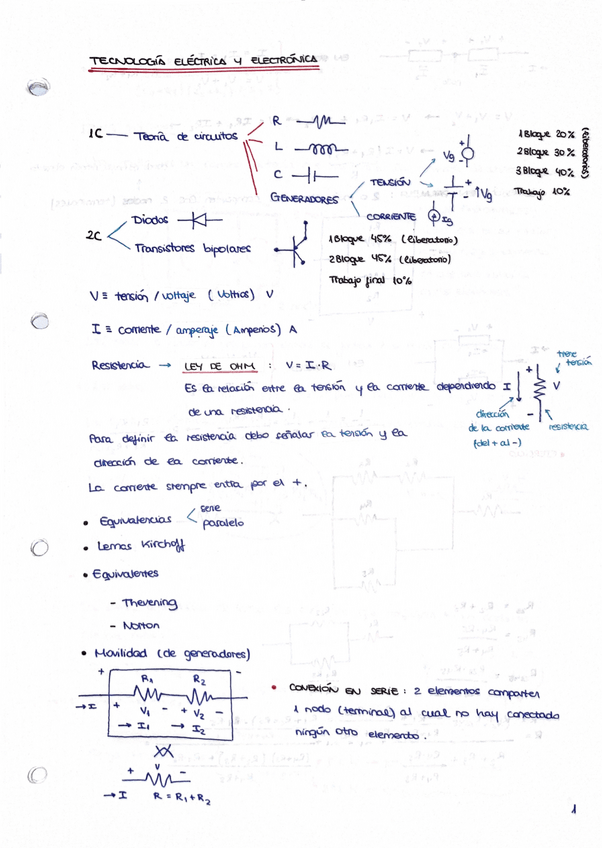 TECNOLOGÍA ELÉCTRICA Y ELECTRÓNICA
1C — Teoría de circuitos
R
L
C
GENERADORES
TENSIÓN
Vg
+
-
+
-
Vg
CORRIENTE
Ig
1 Bloque 20%
2 Bloque 30%
3 Bloque 40%
(liberatorios)
Trabajo 10%
2C
Diodos
Transistores bipolares
1 Bloque 45% (liberatorio)
2 Bloque 45% (liberatorio)
Trabajo final 10%
V ≡ tensión / voltaje (Voltios) V
I ≡ corriente / amperaje (Amperios) A
Resistencia → LEY DE OHM : V = I·R
Es la relación entre la tensión y la corriente dependiendo
de una resistencia.
tiene
tensión
I
+
V
-
dirección
de la corriente
(del + al -)
resistencia
Para definir la resistencia debo señalar la tensión y la
dirección de la corriente.
La corriente siempre entra por el +.
• Equivalencias
serie
paralelo
• Lemas Kirchoff
• Equivalentes
- Thevening
- Norton
• Movilidad (de generadores)
+ -
R1 R2
→ I + V1 - + V2 -
→ I1 → I2
V
+ -
→ I R = R1 + R2
• CONEXIÓN EN SERIE : 2 elementos comparten
1 nodo (terminal) al cual no hay conectado
ningún otro elemento.
1